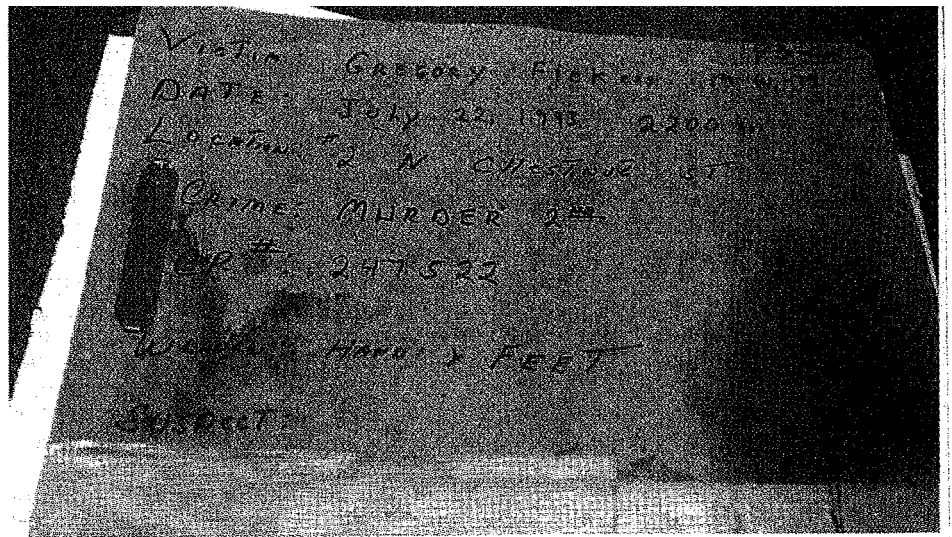 VICTIM GREGORY
DATE: July 22, 1993 2200
LOCATION: #2 N. CHESTNUT ST
CRIME: MURDER 2ND
CR #: 247522
WEAPON: HAND & FEET
SUSPECT: